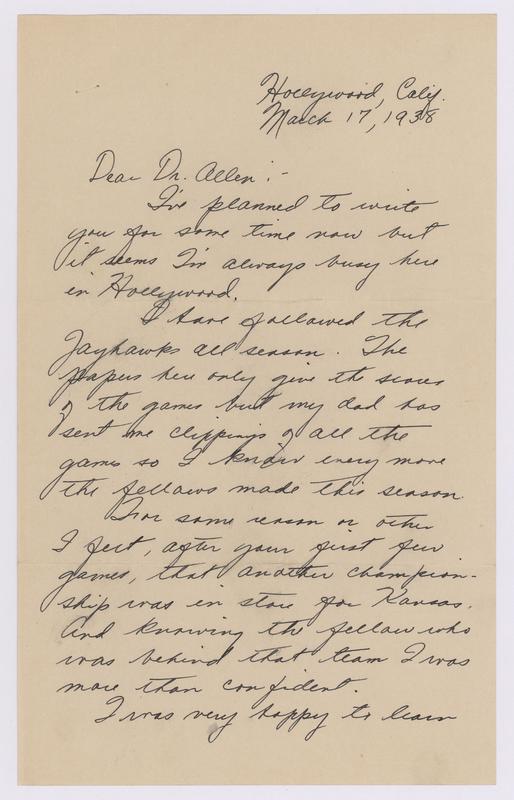 Hollywood, Calif.
March 17, 1938
Dear Dr. Allen:-
I've planned to write
you for some time now but
it seems I'm always busy here
in Hollywood.
I have followed the
Jayhawks all season. The
papers here only give the scores
of the games but my dad has
sent me clippings of all the
games so I know every move
the fellows made this season.
For some reason or other
I felt, after your first few
games, that another champion-
ship was in store for Kansas.
And knowing the fellow who
was behind that team I was
more than confident.
I was very happy to learn